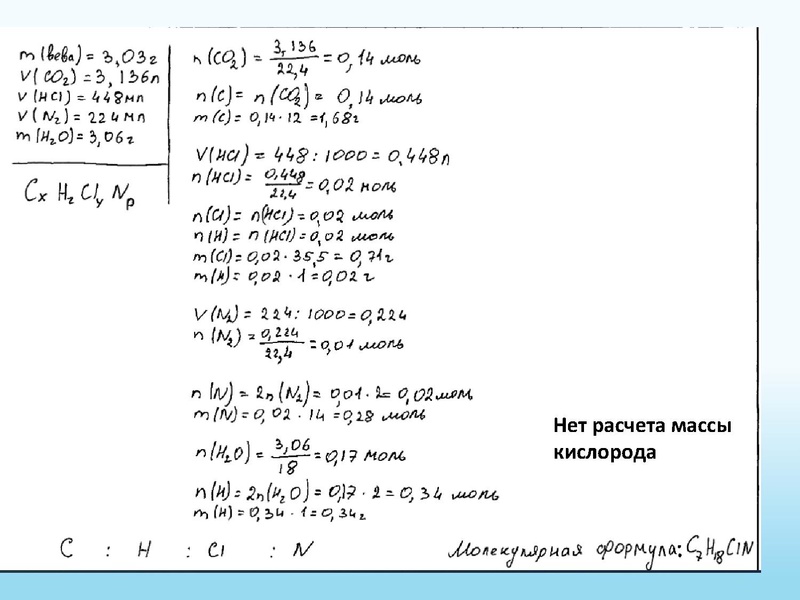 m(вева) = 3,03г
V(CO₂) = 3,136л
V(HCl) = 448мл
V(N₂) = 224мл
m(H₂O) = 3,06г
Cₓ H_z Cl_y N_p
n(CO₂) = 3,136/22,4 = 0,14 моль
n(C) = n(CO₂) = 0,14 моль
m(C) = 0,14 · 12 = 1,68г
V(HCl) = 448 : 1000 = 0,448л
n(HCl) = 0,448/22,4 = 0,02 моль
n(Cl) = n(HCl) = 0,02 моль
n(H) = n(HCl) = 0,02 моль
m(Cl) = 0,02 · 35,5 = 0,71г
m(H) = 0,02 · 1 = 0,02 г
V(N₂) = 224 : 1000 = 0,224
n(N₂) = 0,224/22,4 = 0,01 моль
n(N) = 2n(N₂) = 0,01 · 2 = 0,02 моль
m(N) = 0,02 · 14 = 0,28 моль
n(H₂O) = 3,06/18 = 0,17 моль
n(H) = 2n(H₂O) = 0,17 · 2 = 0,34 моль
m(H) = 0,34 · 1 = 0,34г
Нет расчета массы
кислорода
C : H : Cl : N Молекулярная формула: C₇H₁₈ClN